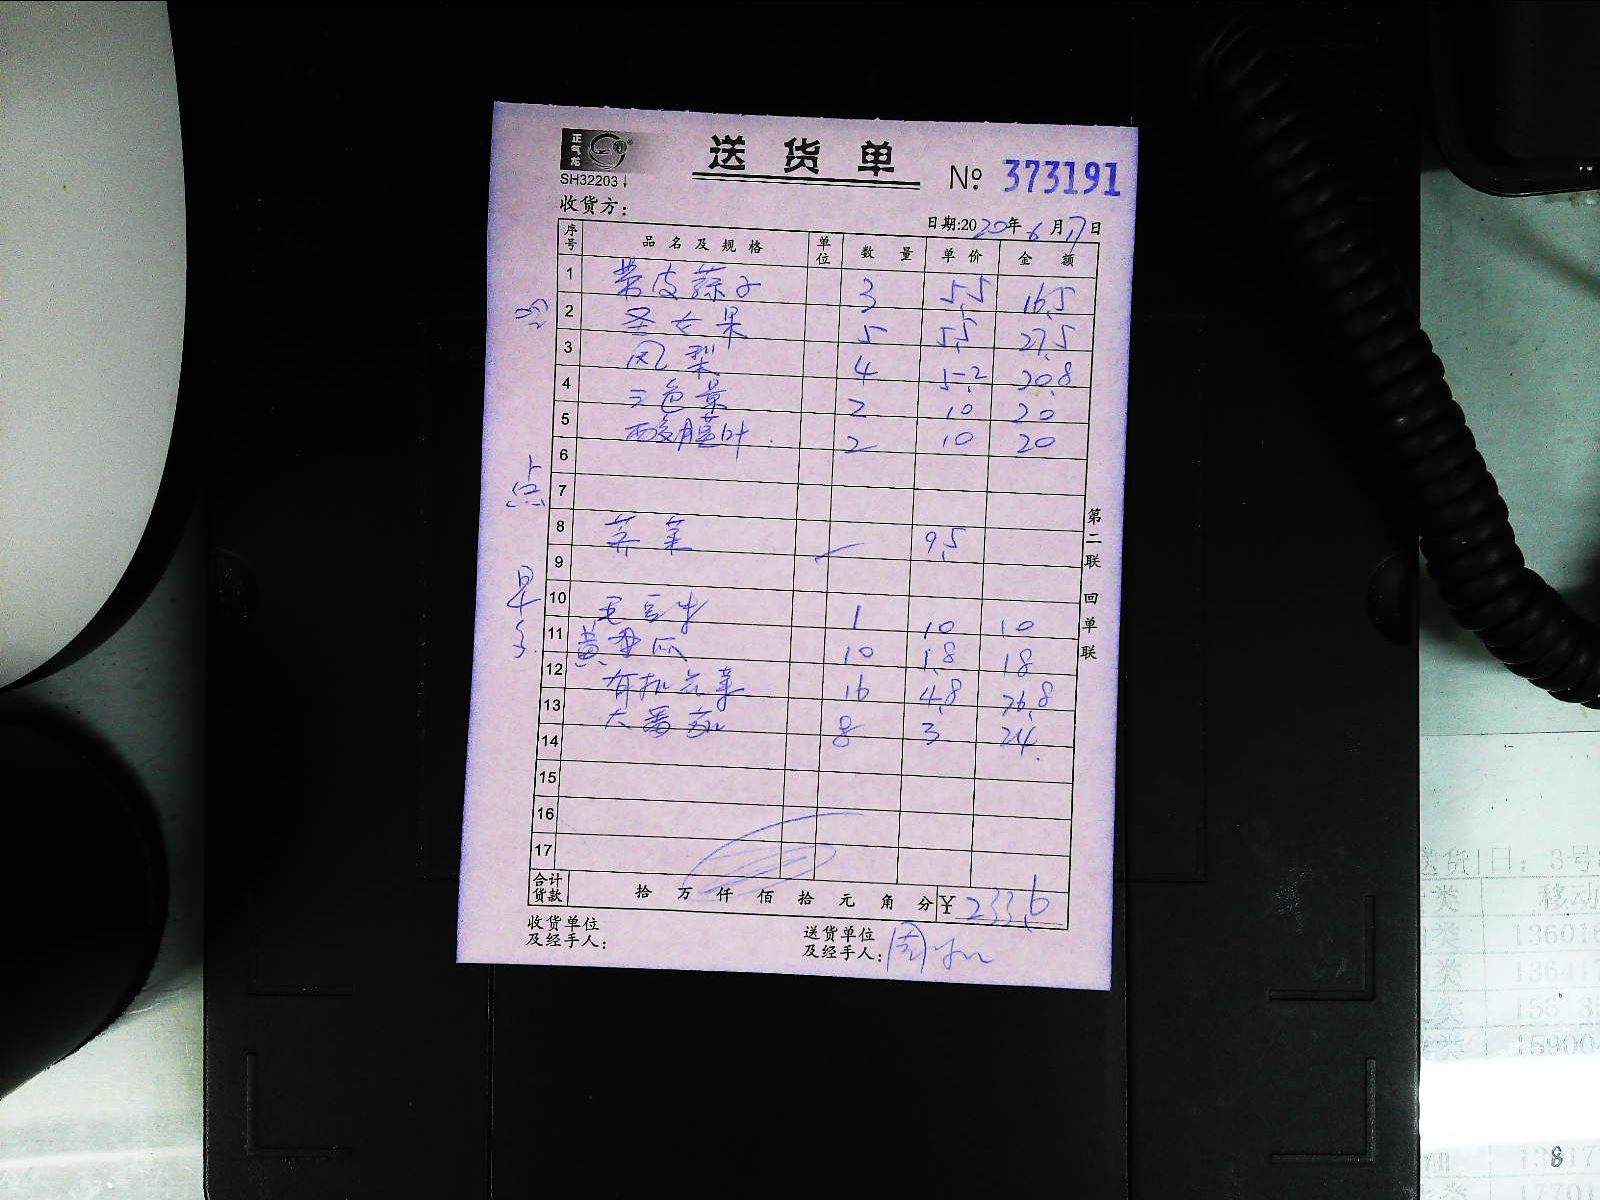 正气龙
送货单
№ 373191
SH32203
收货方：
日期:2020年6月17日
序号 品名及规格 单位 数量 单价 金额
1 带皮蒜子 3 5.5 16.5
2 圣女果 5 5.5 27.5
3 凤梨 4 5.2 20.8
4 三色景 2 10 20
5 酸膜叶 2 10 20
6
点
7
8 荠菜 9.5
9
早
10 毛豆 1 10 10
11 黄 瓜 10 1.8 18
12 有机花菜 16 4.8 76.8
13 大番茄 8 3 24
14
15
16
17
合计货款 拾 万 仟 佰 拾 元 角 分 ¥ 233.6
收货单位及经手人：
送货单位及经手人：周
第二联 回单联
送货 日：3号
类 移动
类 13601
类 1364
类 1561
类 15900
1317
类 17701